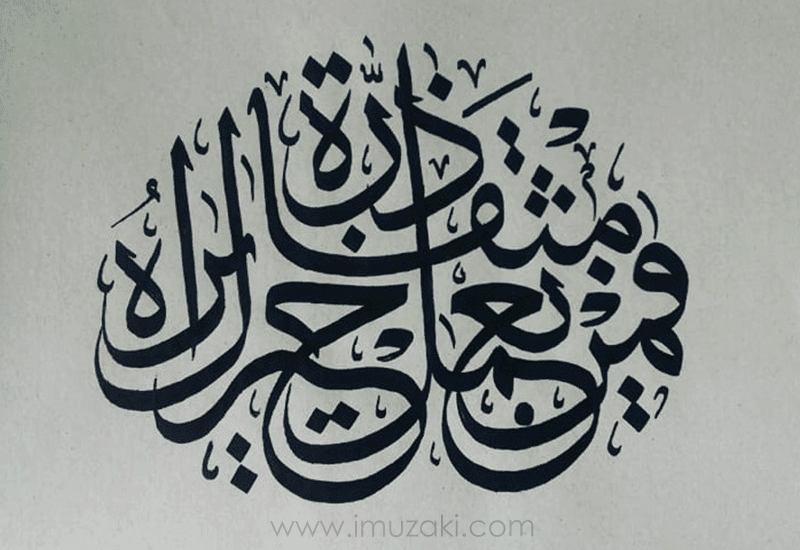 فمن يعمل مثقال ذرة خيرا يره
www.imuzaki.com